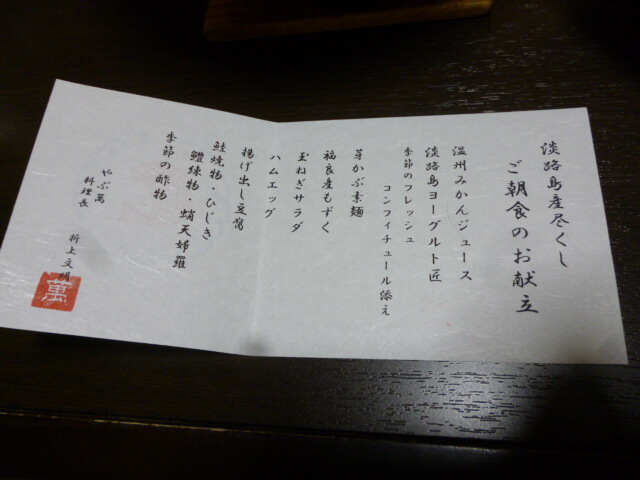 淡路島産尽くし
ご朝食のお献立
温州みかんジュース
淡路島ヨーグルト匠
季節のフレッシュ
コンフィチュール添え
芽かぶ素麺
福良産もずく
玉ねぎサラダ
ハムエッグ
揚げ出し豆腐
鮭焼物・ひじき
鱧練物・蛸天婦羅
季節の酢物
やぶ萬
料理長
折上文明
萬